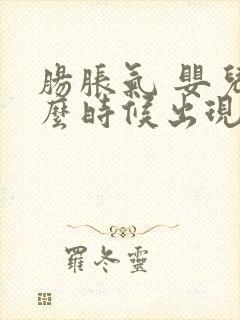 腸脹氣 嬰兒
麼時候出現
羅冬靈